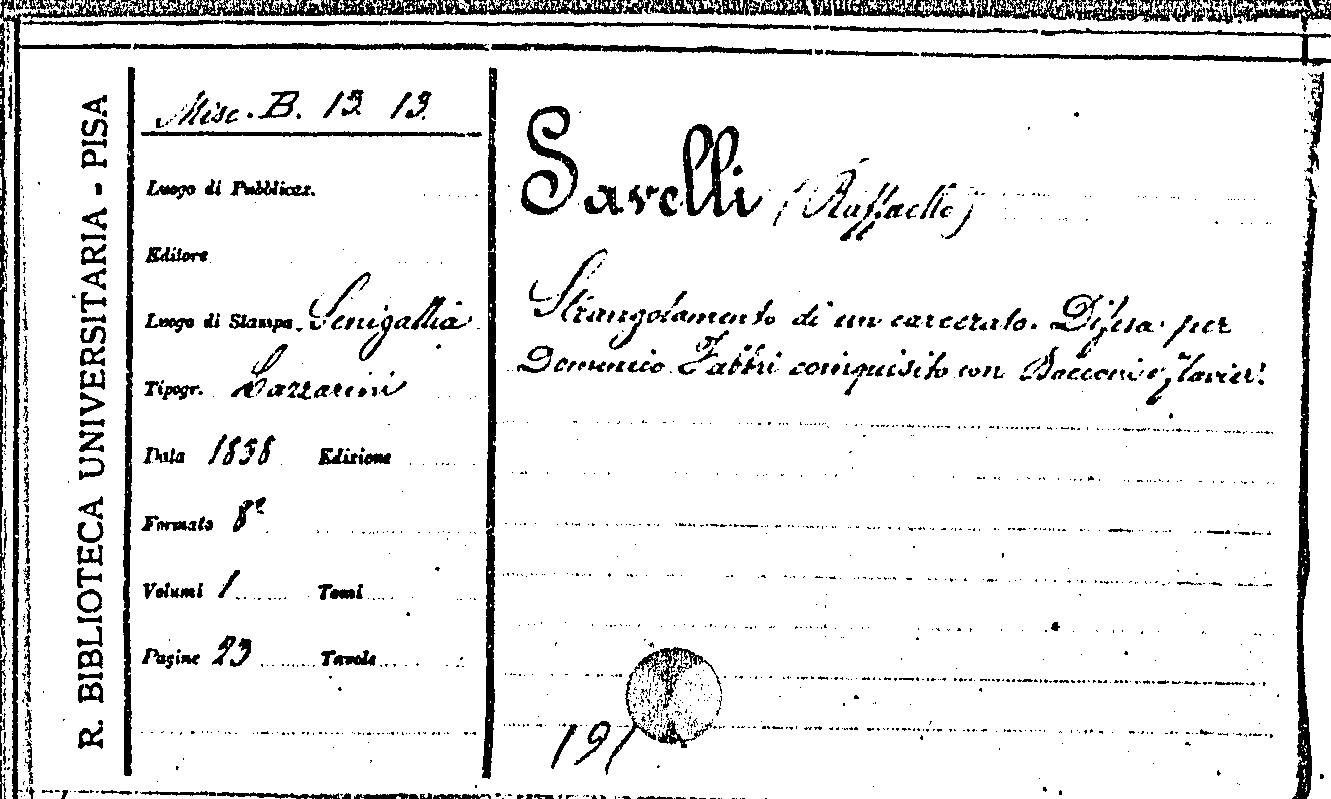 R. BIBLIOTECA UNIVERSITARIA - PISA
Misc. B. 13. 13.
Luogo di Pubblicaz.
Editore
Luogo di Stampa. Senigallia
Tipogr. Lazzarini
Data 1858 Edizione
Formato 8º
Volumi 1 Tomi
Pagine 23 Tavole
Savelli (Raffaello)
Strangolamento di un carcerato. Difesa per
Domenico Fabbri coinquisito con
191